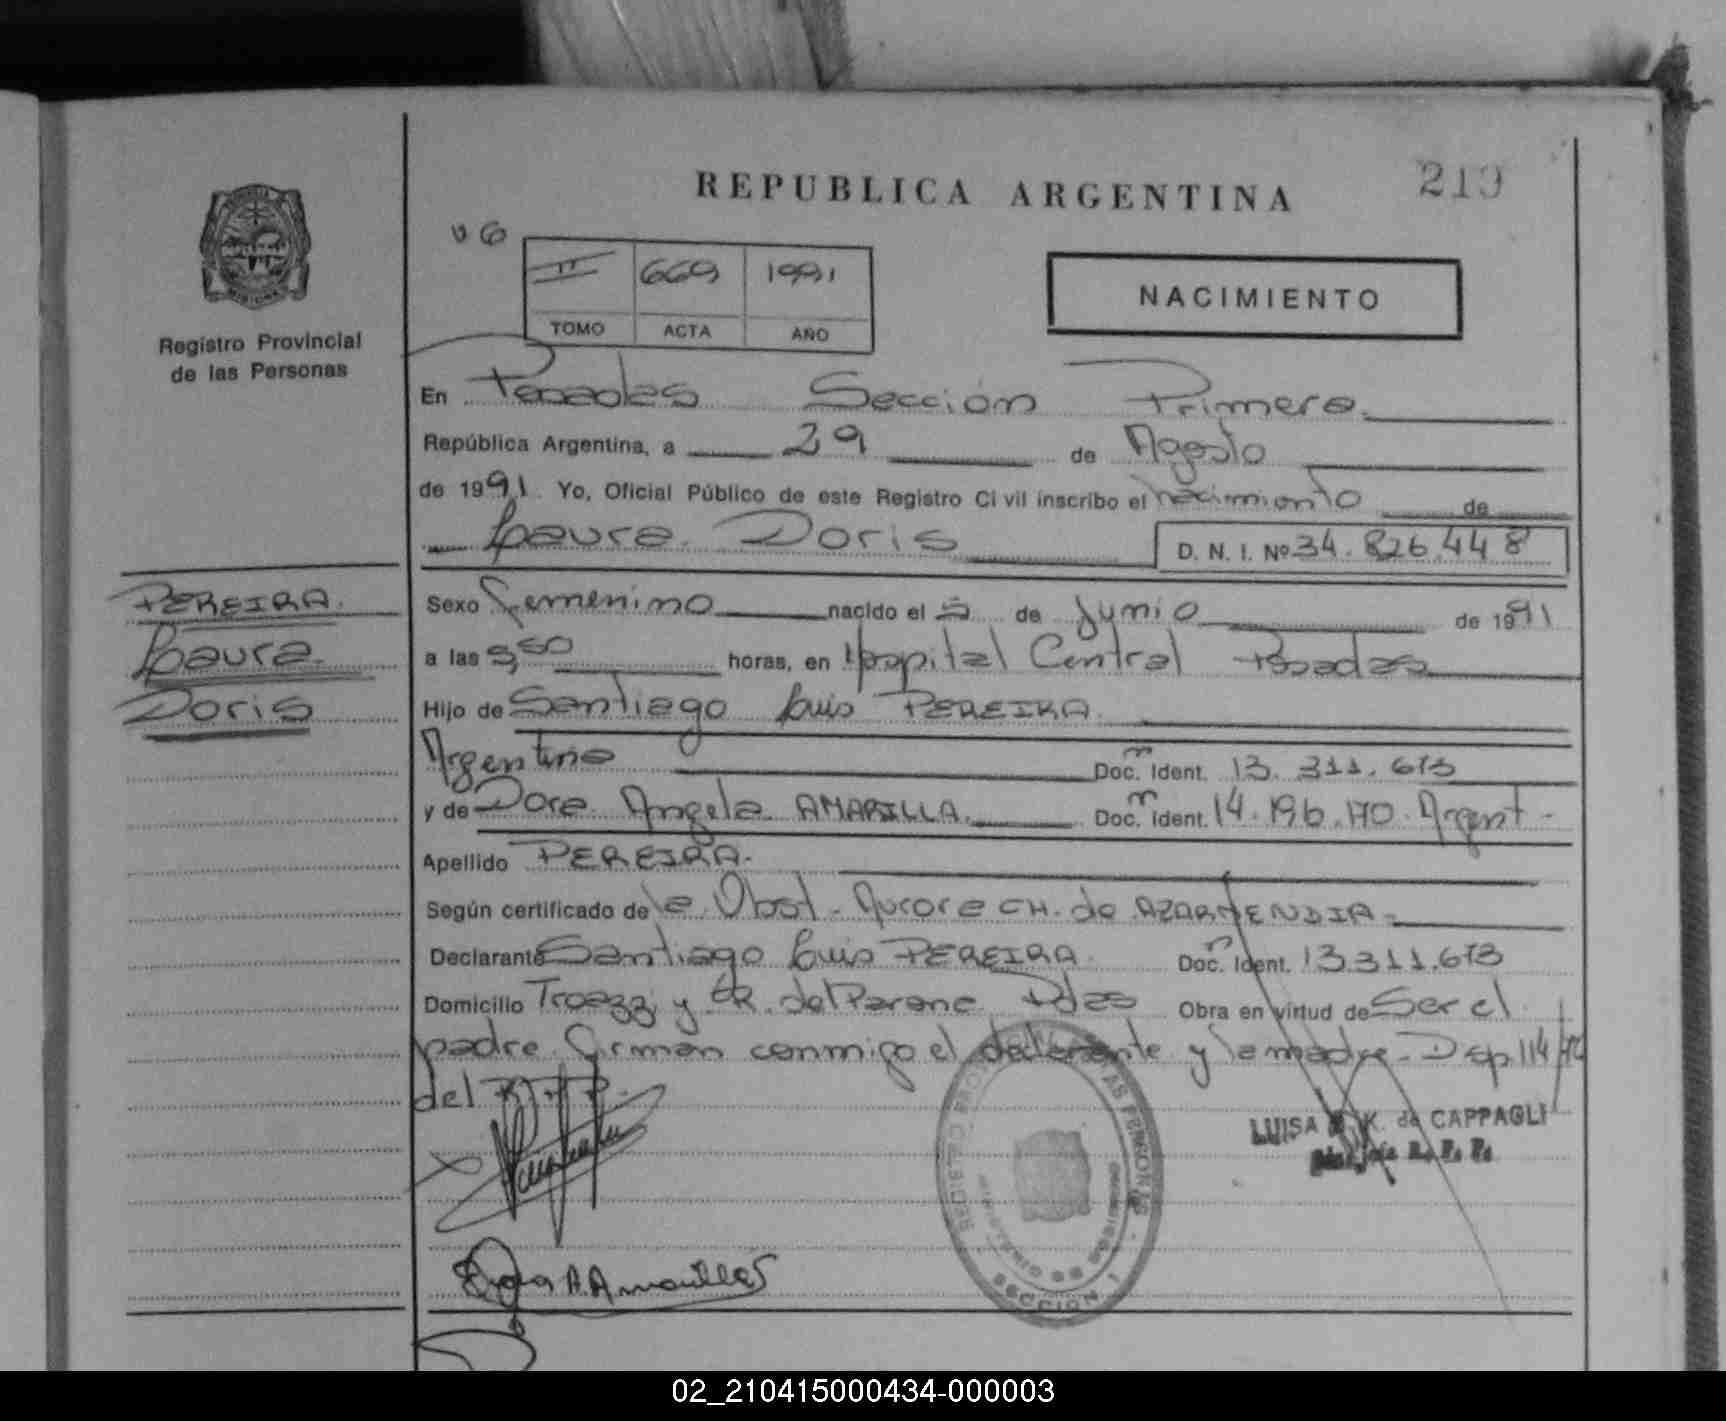 REPUBLICA ARGENTINA
219
Registro Provincial
de las Personas
II 669 1991
TOMO ACTA AÑO
NACIMIENTO
En Posadas Sección Primera
República Argentina, a 29 de Agosto
de 1991. Yo, Oficial Público de este Registro Civil inscribo el nacimiento de
Laura Doris D. N. I. Nº 34.826.448
PEREIRA.
Laura
Doris
Sexo femenino nacido el 5 de Junio de 1991
a las horas, en Hospital Central Posadas
Hijo de Santiago Luis PEREIRA.
Argentino Doc. Ident. 13.311.673
y de Dora Angela AMARILLA. Doc. Ident. 14.196.170. Argent.
Apellido PEREIRA.
Según certificado de la Obst. Aurora CH. de AZARMENDIA
Declarante Santiago Luis PEREIRA. Doc. Ident. 13.311.673
Domicilio y del Parana Pdas Obra en virtud de Ser el
padre. Firman conmigo el declarante y la madre. Disp. 114
del
LUISA K. de CAPPAGLI
SECCION 1
02_210415000434-000003